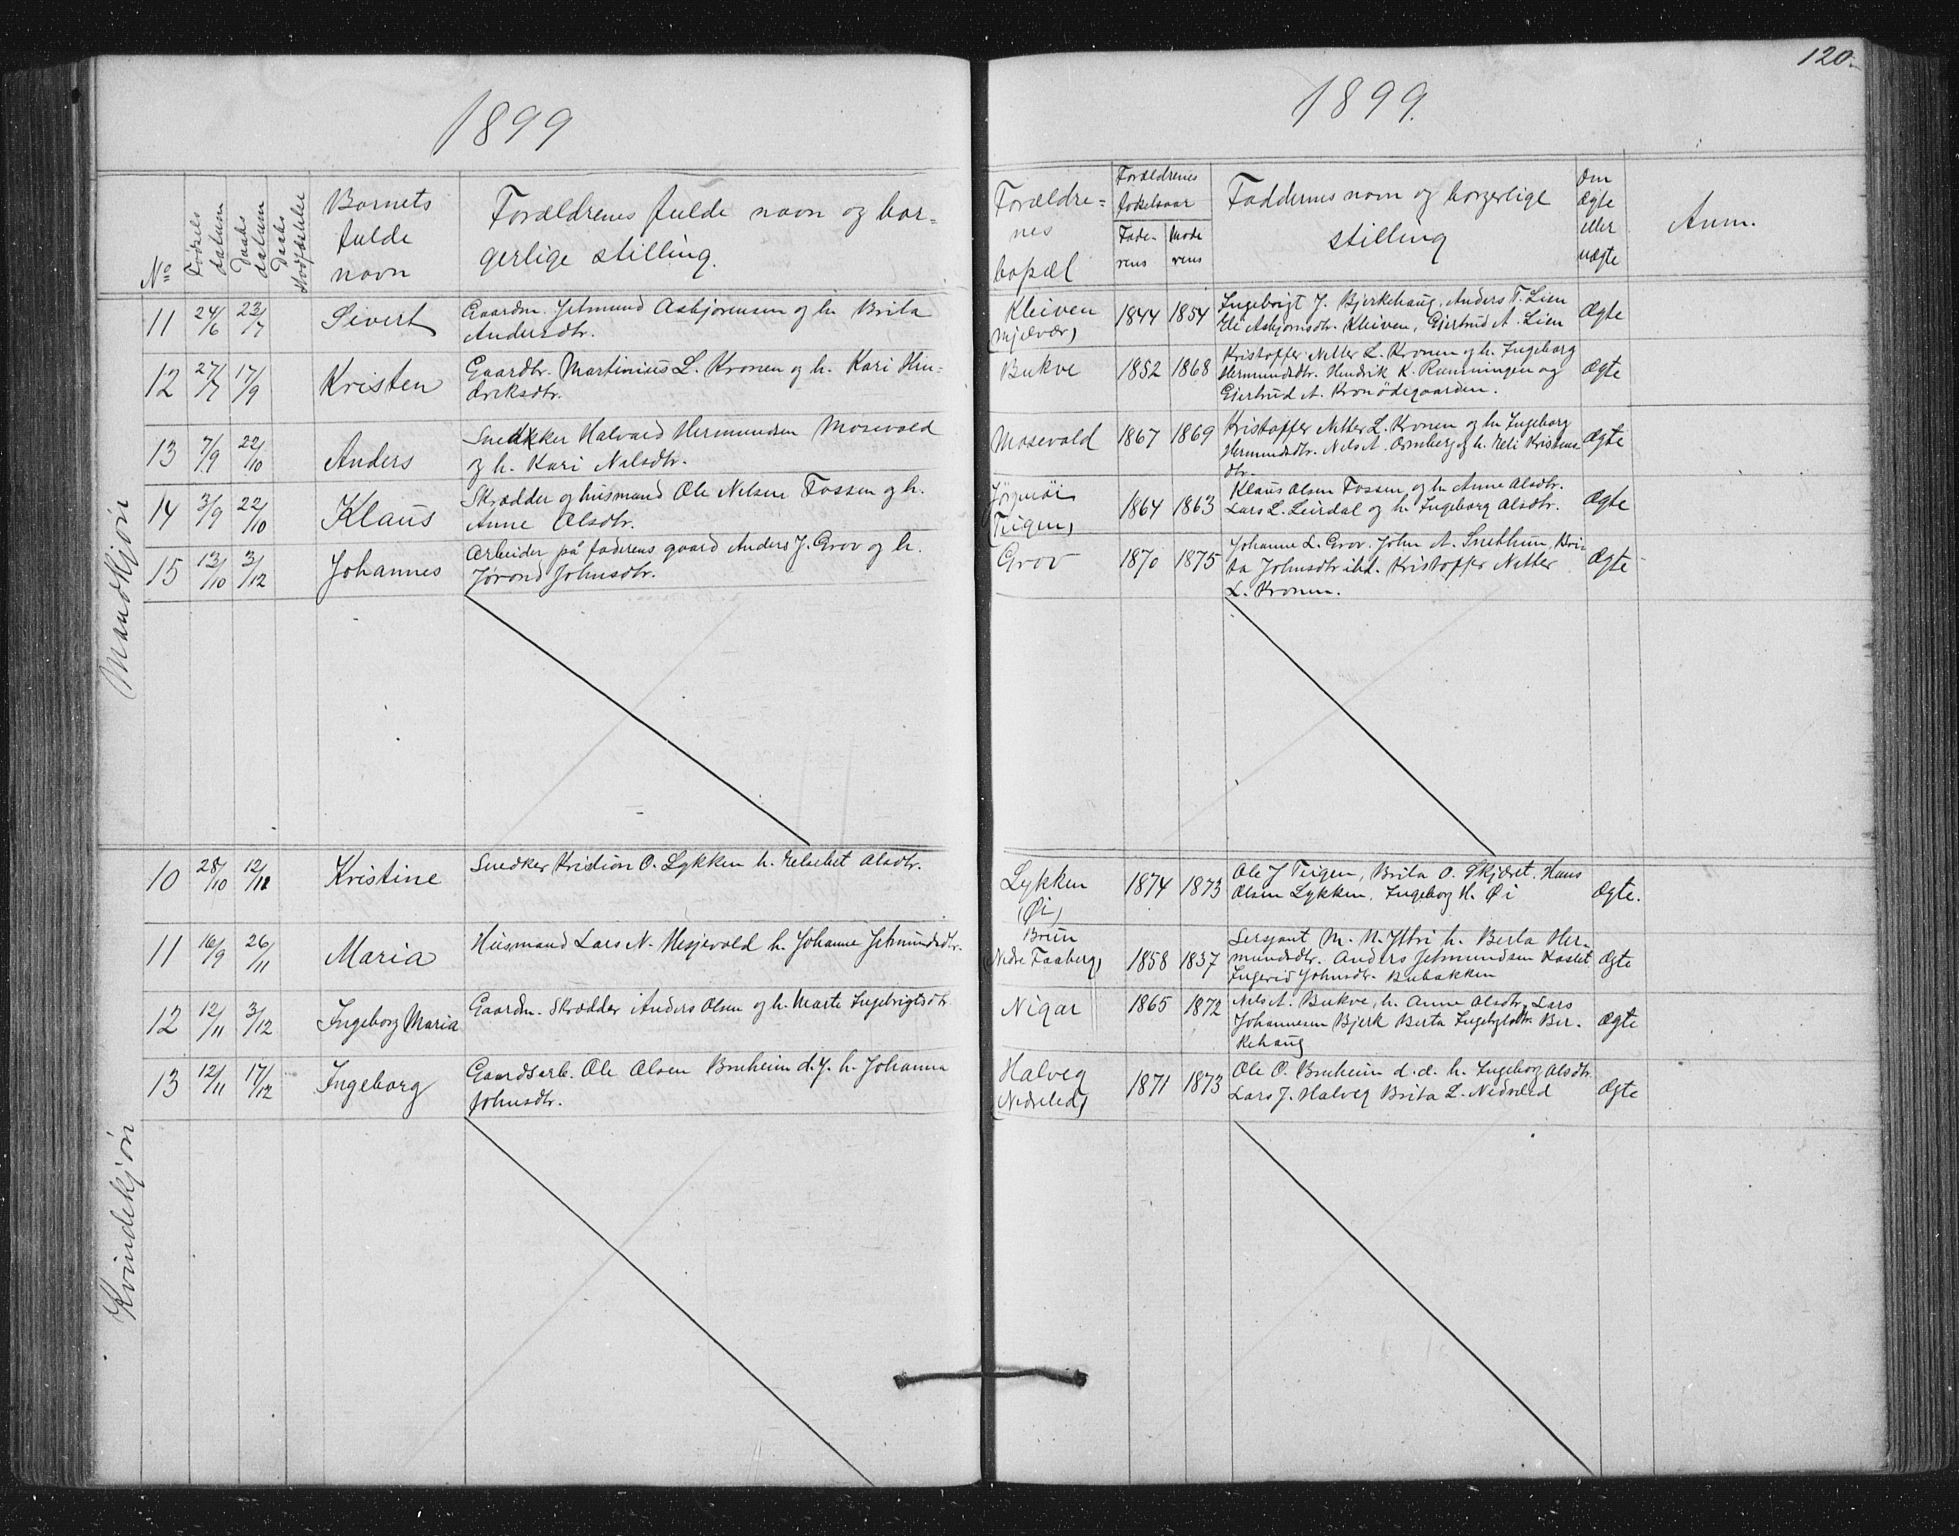 120.
1899
1899.
No
Fødsels datum
Daabs datum
Daabs stadfæstelse
Barnets fulde navn
Forældrenes fulde navn og borgerlige stilling.
Forældrenes bopæl
Forældrenes fødselsaar
Faderens
Moderens
Faddernes navn og borgerlige stilling
Om ægte eller uægte
Anm.
Mandkjøn
11 24/6 23/7 Sivert Gaardm. Jetmund Asbjørensen og h. Brita
Andersdtr.
Kleiven
(Mjelvær)
1844 1854
Ingebrigt J. Bjerkehaug, Anders T. Lien
Eli Asbjørnsdtr. Kleiven, Gjertrud A. Lien
Ægte
12 27/7 17/9 Kristen Gaardbr. Martinius L. Kronen og h. Kari Hin-
driksdtr.
Bukve
1852 1868
Kristoffer Nitter L. Kronen og h. Ingeborg
Hermundsdtr. Hendrik K. Rømmingen og
Gjertrud A. Kronødegaarden.
Ægte
13 7/9 22/10 Anders Snedkker Halvard Hermundsen Mosevold
og h. Kari Nilsdtr.
Mosevold
1867 1869
Kristoffer Nitter L. Kronen og h. Ingeborg
Hermundsdtr. Nels A. Ormberg og h. Eli Kristens
dtr.
Ægte
14 3/9 22/10 Klaus Skrædder og husmand Ole Nelsen Fossen og h.
Anne Olsdtr.
(Teigen)
1864 1863
Klaus Olsen Fossen og h. Anne Olsdtr.
Lars L. Leirdal og h. Ingeborg Olsdtr.
Ægte
15 13/10 3/12 Johannes Arbeider på faderens gaard Anders J. Grov og h.
Jørond Johnsdtr.
Grov
1870 1875
Johanne L. Grov. John A. Snethun, Bri-
ta Johnsdtr ibd. Kristoffer Nitter
L. Kronen.
Ægte
Kvindekjøn
10 28/10 12/11 Kristine Snedker Kristian O. Lykken h. Elsebet Olsdtr.
Lykken
(Øi)
1874 1873
Ole J Teigen, Brita O. Skjæret. Hans
Olsen Lykken. Ingeborg H. Øi
Ægte.
11 16/9 26/11 Maria Husmand Lars N. Hesjevold h. Johanne Jetmundsdtr.
Brun
(Nedre Faaberg)
1858 1857
Sersjant M. N. Ytri h. Berta Her-
mundsdtr. Anders Jetmundsen Kastet
Ingerid Johnsdtr. Bubakken
Ægte
12 12/11 3/12 Ingeborg Maria Gaardm. Skrædder Anders Olsen og h. Marte Ingebrigtsdtr
Nigar
1865 1872
Nels A. Bukve, h. Anne Olsdtr, Lars
Johannesen Bjerk Berta Ingebgtsdtr. Ber-
kehaug
Ægte
13 12/11 17/12 Ingeborg Gaardsarb. Ole Olsen Bruheim d. y. h. Johanna
Johnsdtr.
Halveg
(Nedreled)
1871 1873
Ole O. Bruheim d. æ. h. Ingeborg Olsdtr.
Lars J. Halveg Brita L. Nedreled
Ægte